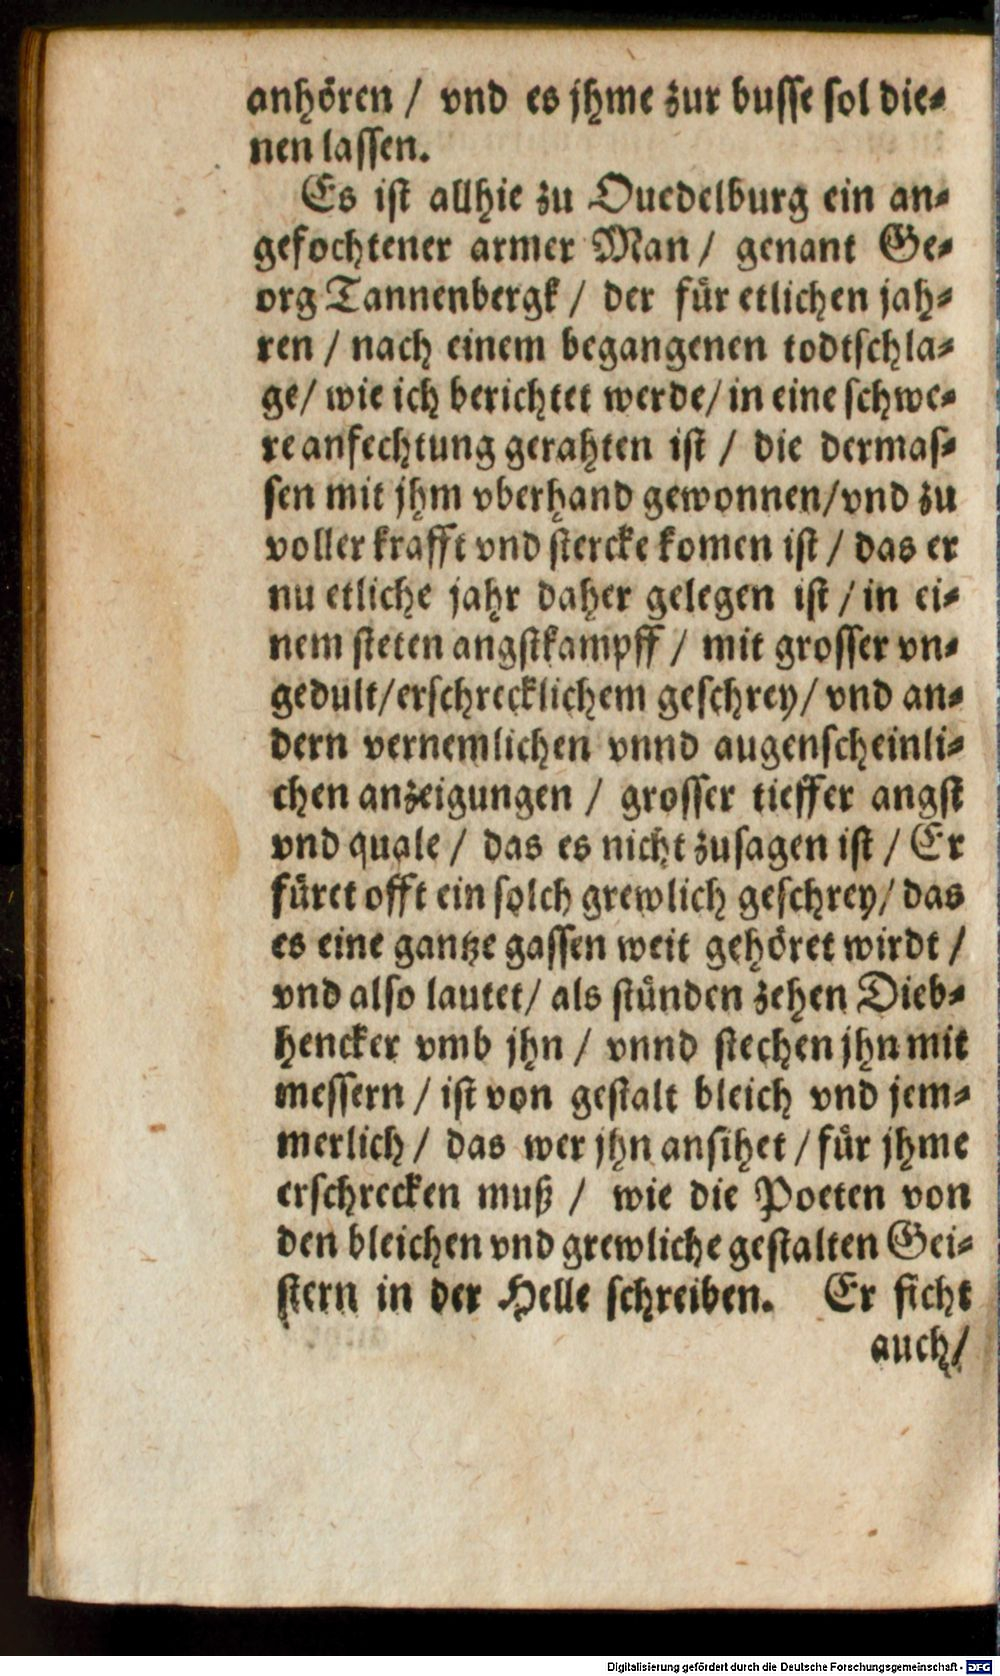 anhören / vnd es jhme zur busse sol die-
nen lassen.
Es ist allhie zu Quedelburg ein an-
gefochtener armer Man / genant Ge-
org Tannenbergk / der für etlichen jah-
ren / nach einem begangenen todtschla-
ge/ wie ich berichtet werde/ in eine schwe-
re anfechtung gerahten ist / die dermas-
sen mit jhm vberhand gewonnen/vnd zu
voller krafft vnd stercke komen ist / das er
nu etliche jahr daher gelegen ist / in ei-
nem steten angstkampff / mit grosser vn-
gedult/erschrecklichem geschrey/ vnd an-
dern vernemlichen vnnd augenscheinli-
chen anzeigungen / grosser tieffer angst
vnd quale / das es nicht zusagen ist / Er
füret offt ein solch grewlich geschrey/ das
es eine gantze gassen weit gehöret wirdt /
vnd also lautet/ als stünden zehen Dieb-
hencker vmb jhn / vnnd stechen jhn mit
messern / ist von gestalt bleich vnd jem-
merlich / das wer jhn ansihet / für jhme
erschrecken muß / wie die Poeten von
den bleichen vnd grewliche gestalten Gei-
stern in der Helle schreiben. Er ficht
auch/
Digitalisierung gefördert durch die Deutsche Forschungsgemeinschaft - DFG